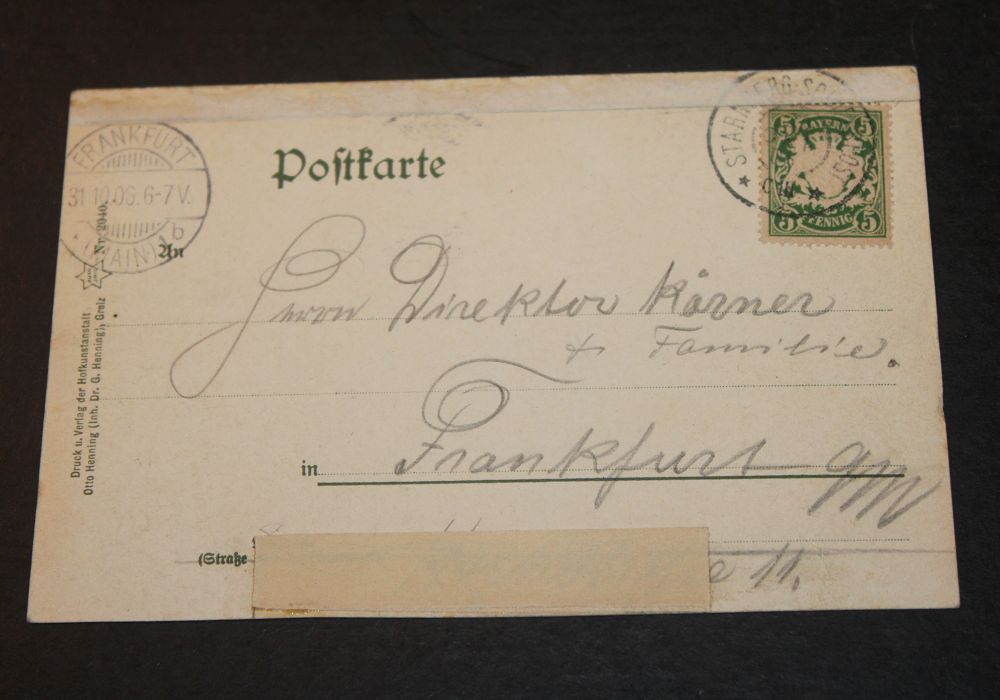 Postkarte
FRANKFURT
31.10.06.6-7V.
(MAIN) b
5 BAYERN 5
5 PFENNIG 5
An
Herrn Direktor Körner
+ Familie.
in Frankfurt a/M
(Straße
11.
Nr. 2040
Druck u. Verlag der Hofkunstanstalt
Otto Henning (Inh. Dr. G. Henning), Greiz